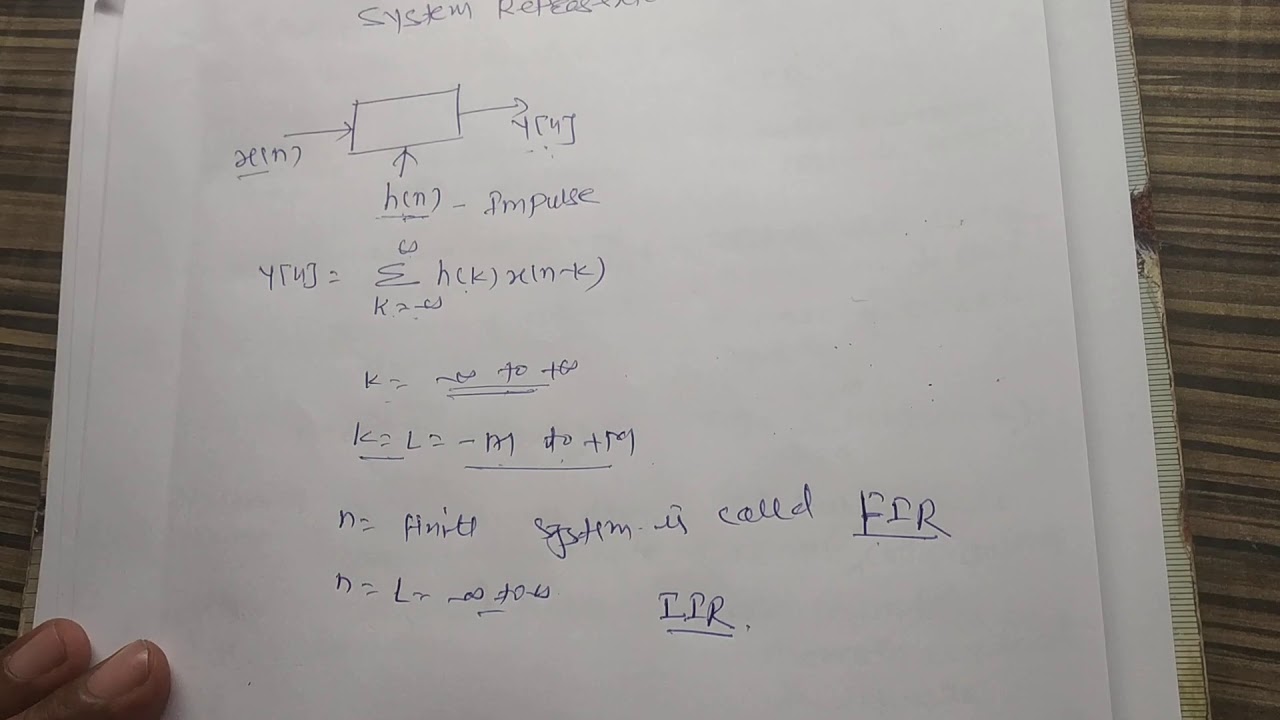 System
x(n)
y[n]
h(n) - Impulse
y[n] = ∞ Σ k=-∞ h(k) x(n-k)
k = -∞ to +∞
k = L = -M to +M
n = finite system is called FIR
n = L = -∞ to ∞ IIR.